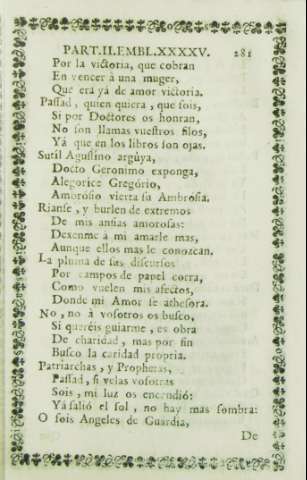 PART.II.EMBL.XXXXV. 281
Por la victoria, que cobran
En vencer à una muger,
Que erà yá de amor victoria.
Passad, quien quiera, que sois,
Si por Doctores os honran,
No son llamas vuestros filos,
Yà que en los libros son ojas.
Sutil Agustino argúya,
Docto Geronimo exponga,
Alegorice Gregório,
Amorosio vierta su Ambrosia.
Rianse, y burlen de extremos
De mis ansias amorosas:
Dexenme à mi amarle mas,
Aunque ellos mas le conozcan.
La pluma de sus discursos
Por campos de papel corra,
Como vuelen mis afectos,
Donde mi Amor se athesora.
No, no à vosotros os busco,
Si queréis guiarme, es obra
De charidad, mas por fin
Busco la caridad propria.
Patriarchas, y Prophetas,
Passad, si velas vosotras
Sois, mi luz os encendió:
Yá salió el sol, no hay mas sombra:
O sois Angeles de Guardia,
De